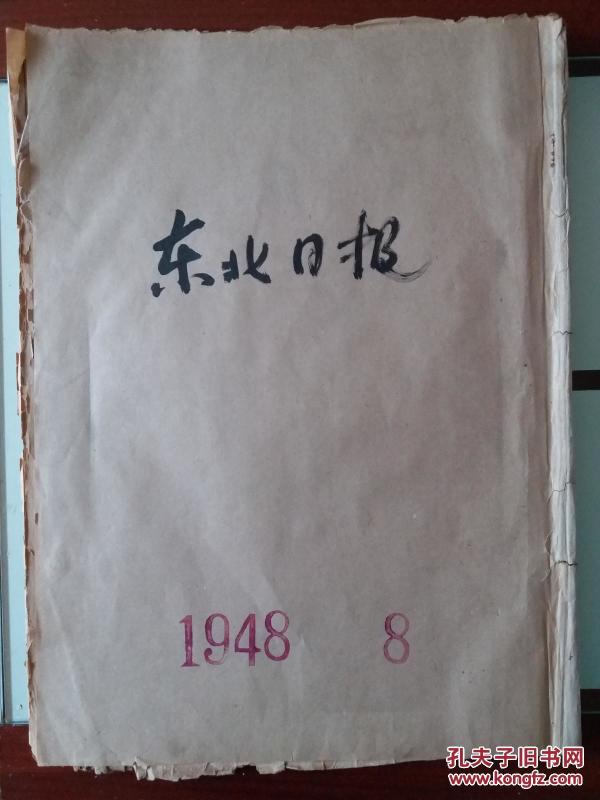 东北日报
1948 8
孔夫子旧书网
www.kongfz.com